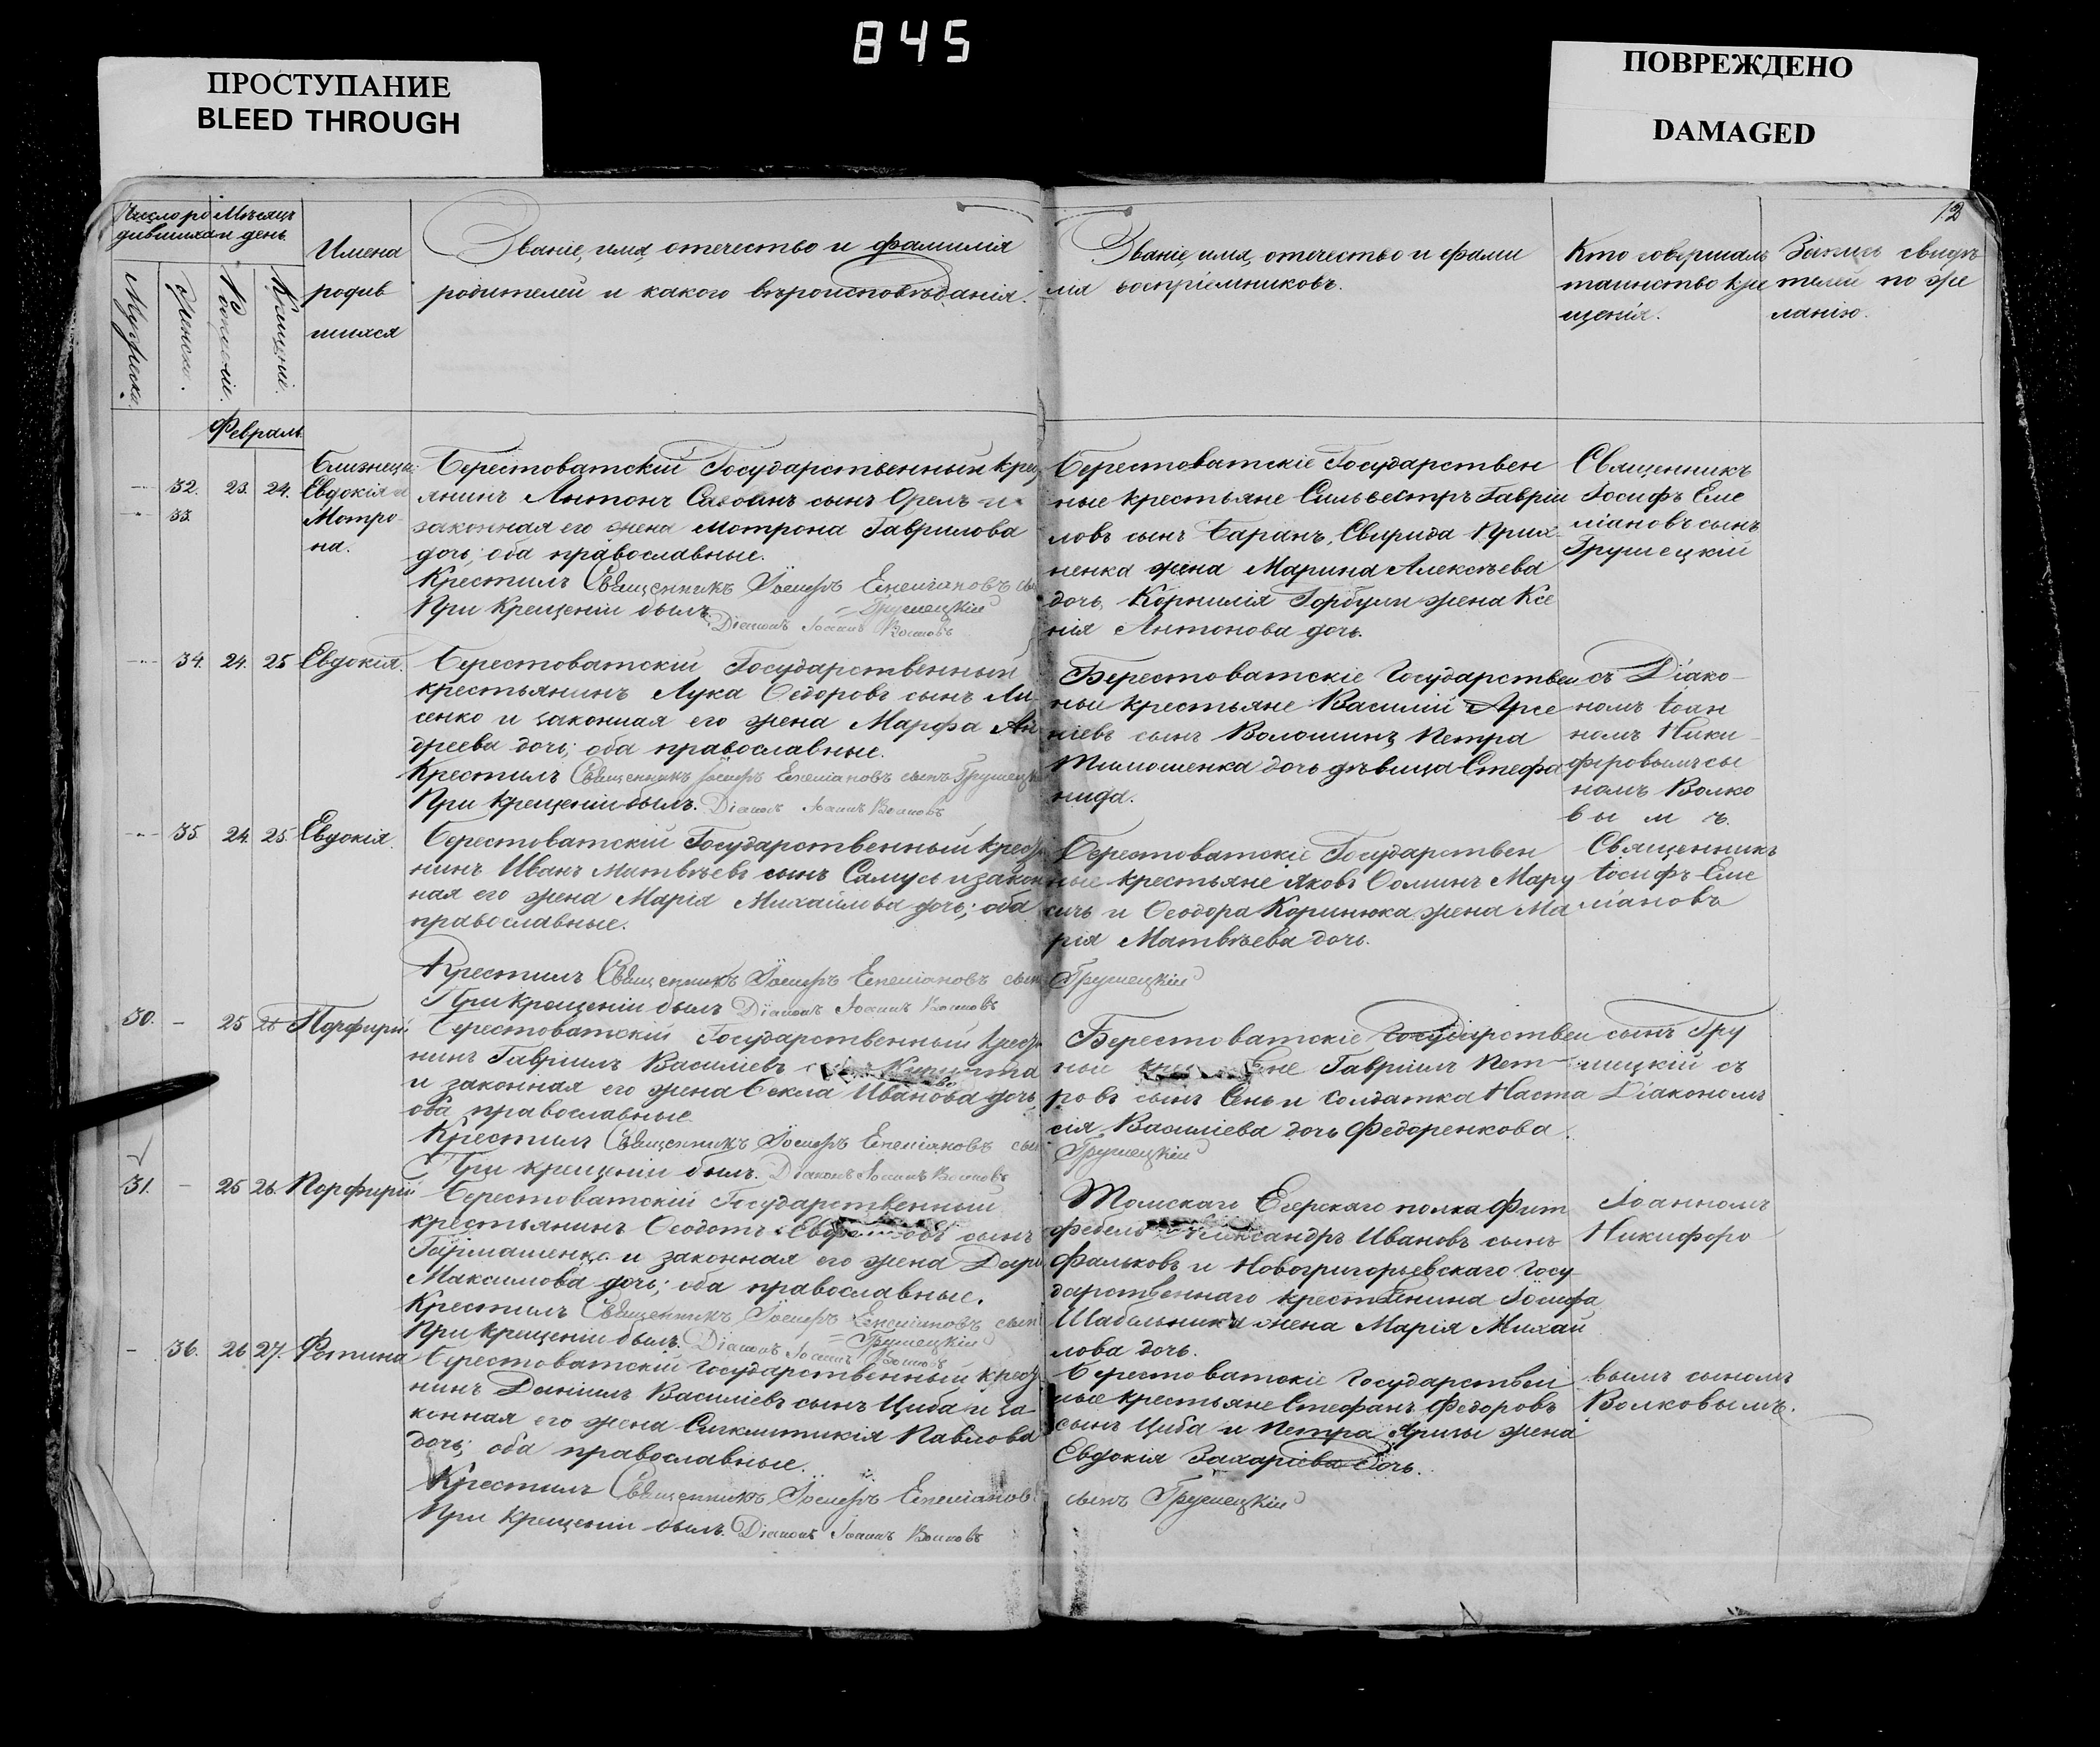 845
ПРОСТУПАНИЕ
BLEED THROUGH
ПОВРЕЖДЕНО
DAMAGED
12
Число ро
дившихся
Мѣсяцъ
и день.
Мужеска.
Женска.
Рожденія.
Крещенія.
Имена
родив
шихся
Званіе, имя, отечество и фамилія
родителей и какого вѣроисповѣданія.
Званіе, имя, отечество и фами
лія воспріемниковъ.
Кто совершалъ
таинство кре
щенія.
Запись свидѣ
телей по же
ланію.
Февраль.
32. 23. 24.
33.
Близнецы:
Евдокія и
Мотро-
на.
Берестоватскій Государственный крес
янинъ Антонъ Саввинъ сынъ Орелъ и
законная его жена Мотрона Гаврилова
дочь; оба православные.
Крестилъ Священникъ Іосифъ Емеліановъ сы
Грушецкій
При крещеніи былъ Діаконъ Іоаннъ Волковъ
Берестоватскіе Государствен
ные крестьяне Сильвестръ Гавріи
ловъ сынъ Баранъ, Свирида
ненка жена Марина Алексѣева
дочь, Корнилія Горбули жена Ксе
нія Антонова дочь.
Священникъ
Іосифъ Еме
ліановъ сынъ
Грушецкій
34. 24. 25 Евдокія.
Берестоватскій Государственный
крестьянинъ Лука Ѳедоровъ сынъ Ли
сенко и законная его жена Марфа Ан
дреева дочь; оба православные.
Крестилъ Священникъ Іосифъ Емеліановъ сынъ Грушецкій
При крещеніи былъ. Діаконъ Іоаннъ Волковъ
Берестоватскіе Государствен
ные крестьяне Василій Арсе
ніевъ сынъ Волошинъ, Петра
Тимошенка дочь дѣвица Стефа
нида.
съ Діако-
номъ Іоан
номъ Ники-
форовымъ сы
номъ Волко
вымъ.
35. 24. 25. Евдокія.
Берестоватскій Государственный крестья
нинъ Иванъ Матвѣевъ сынъ Самусь и закон
ная его жена Марія Михайлова дочь; оба
православные.
Крестилъ Священникъ Іосифъ Емеліановъ сынъ
Грушецкій
При крещеніи былъ Діаконъ Іоаннъ Волковъ
Берестоватскіе Государствен
ные крестьяне Яковъ Ѳоминъ Мару
сичъ и Ѳеодора Коринюка жена Ма
рія Матвѣева дочь.
Священникъ
Іосифъ Еме
ліановъ
30. - 25 26 Порфирій
Берестоватскій Государственный крестья
нинъ Гавріилъ Василіевъ
и законная его жена Ѳекла Иванова дочь,
оба православные
Крестилъ Священникъ Іосифъ Емеліановъ сын
Грушецкій
При крещеніи былъ. Діаконъ Іоаннъ Волковъ
Берестоватскіе Государствен
ные Гавріилъ Пет-
ровъ сынъ Сень и солдатка Наста
сія Василіева дочь Федоренкова.
сынъ Гру
шецкій съ
Діакономъ
31. - 25 26. Порфирій
Берестоватскій Государственный
крестьянинъ Ѳеодотъ сынъ
Гармашенко и законная его жена Дарі
Максимова дочь; оба православные.
Крестилъ Священникъ Іосифъ Емеліановъ сын
Грушецкій
При крещеніи былъ. Діаконъ Іоаннъ Волковъ
Томскаго Егерскаго полка Фит
фебель Александръ Ивановъ сынъ
Фальковъ и Новогригорьевскаго Госу
дарственнаго крестьянина Іосифа
Шабельника жена Марія Михай
лова дочь.
Іоанномъ
Никифоро
36. 26 27. Фотина
Берестоватскій Государственный крестья
нинъ Даніилъ Василіевъ сынъ Циба и за
конная его жена Павлова
дочь; оба православные.
Крестилъ Священникъ Іосифъ Емеліанов
сынъ Грушецкій
При крещеніи былъ. Діаконъ Іоаннъ Волковъ
Берестоватскіе Государствен
ные крестьяне Стефанъ Федоровъ
сынъ Циба и Петра жена
Евдокія Захаріева дочь.
вымъ сыномъ
Волковымъ.